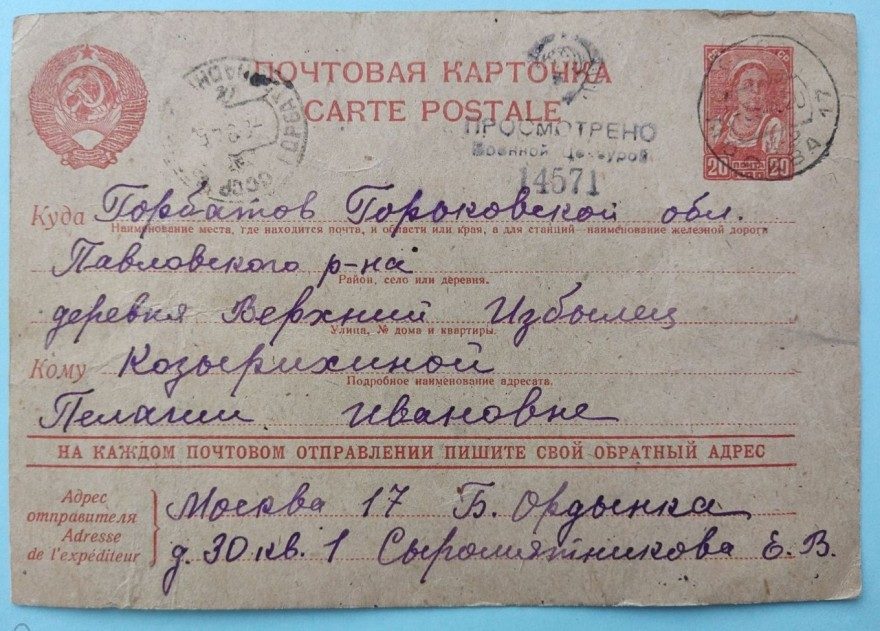 ПОЧТОВАЯ КАРТОЧКА
CARTE POSTALE
ПРОСМОТРЕНО
Военной Цензурой
14571
20 ПОЧТА 20
МОСКВА 17
ГОРБАТОВ
СССР
Куда Горбатов Горьковской обл.
Наименование места, где находится почта, и области или края, а для станций наименование железной дороги
Павловского р-на
Район, село или деревня.
деревня Верхний Избылец
Улица, № дома и квартиры.
Кому Козырихиной
Подробное наименование адресата.
Пелагии Ивановне
НА КАЖДОМ ПОЧТОВОМ ОТПРАВЛЕНИИ ПИШИТЕ СВОЙ ОБРАТНЫЙ АДРЕС
Адрес
отправителя
Adresse
de l'expéditeur
Москва 17 Б. Ордынка
д. 30 кв. 1 Сыромятникова Е. В.